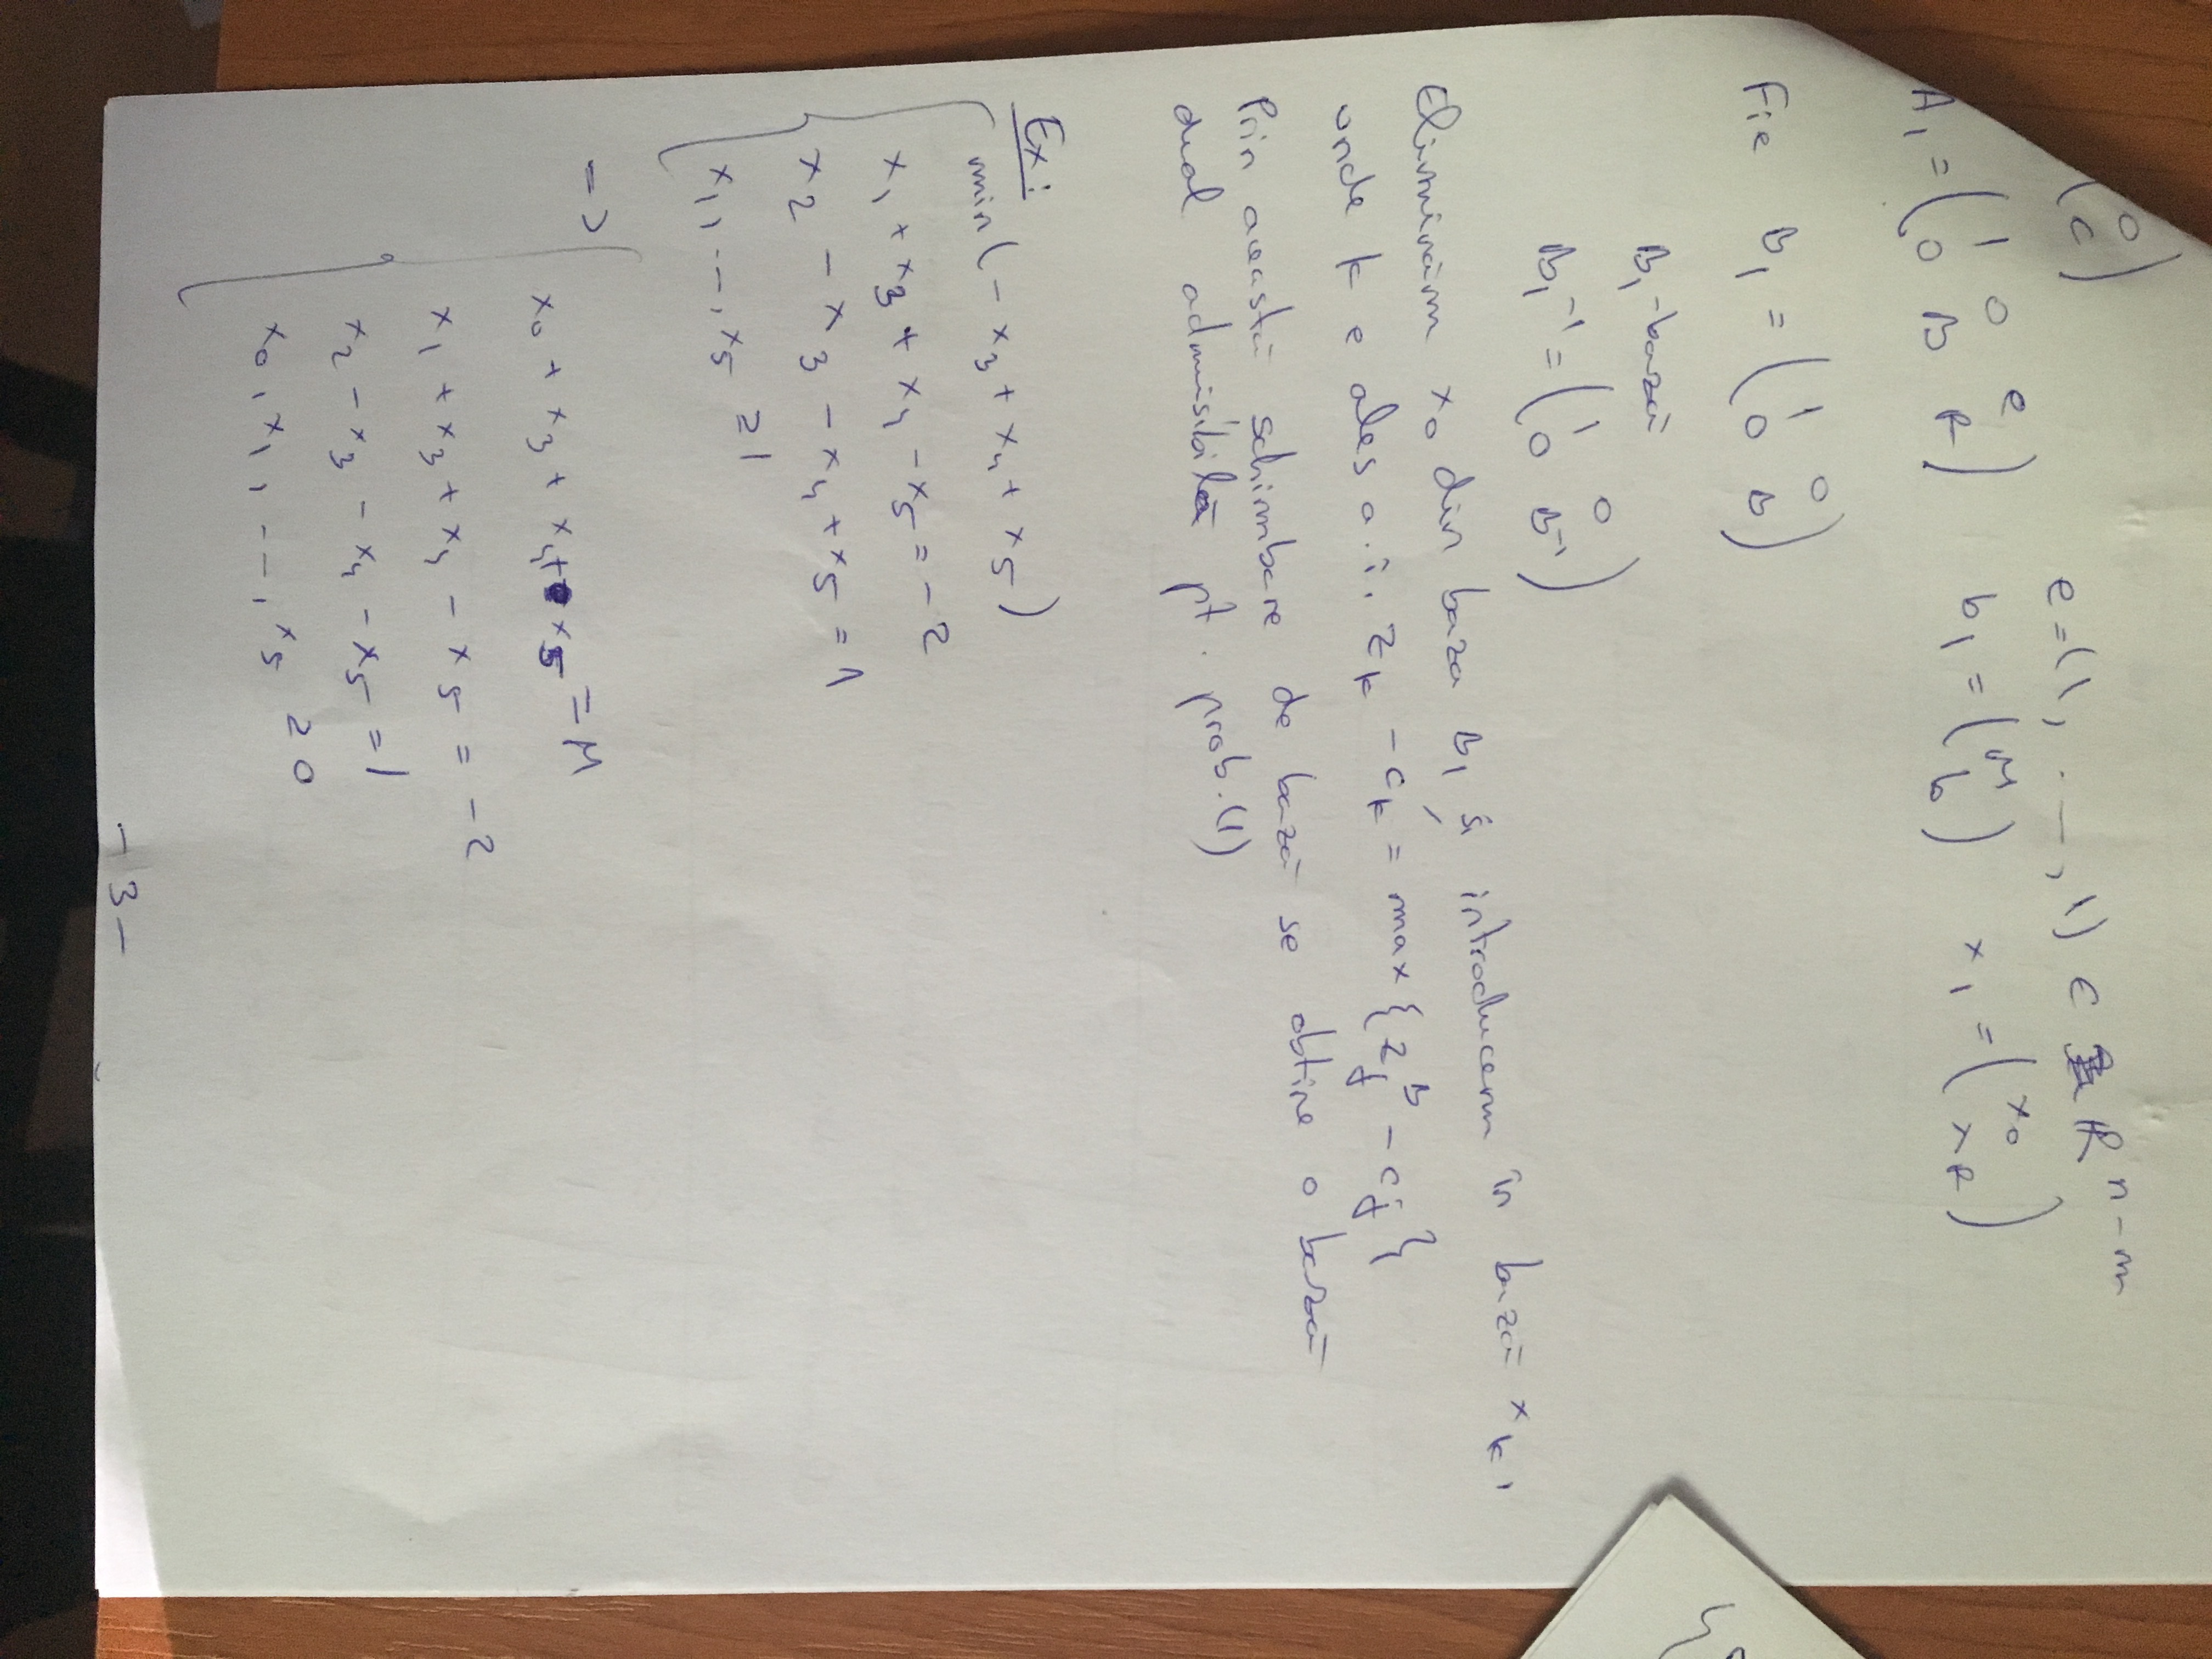 (0 / c) e = (1, . – , 1) ∈ R^{n-m}
A₁ = (1 0 e / 0 B R) b₁ = (M / b) x₁ = (x₀ / x_R)
Fie B₁ = (1 0 / 0 B)
B₁ - bază
B₁⁻¹ = (1 0 / 0 B⁻¹)
Eliminăm x₀ din baza B₁ și introducem în bază x_k,
unde k e ales a.î. z_k - c_k = max { z_j^B - c_j }
Prin această schimbare de bază se obține o bază
dual admisibilă pt. prob. (1)
Ex:
min (- x₃ + x₄ + x₅)
x₁ + x₃ + x₄ - x₅ = -2
x₂ - x₃ - x₄ + x₅ = 1
x₁, ..., x₅ ≥ 1
=> x₀ + x₃ + x₄ + x₅ = M
x₁ + x₃ + x₄ - x₅ = -2
x₂ - x₃ - x₄ - x₅ = 1
x₀, x₁, ---, x₅ ≥ 0
- 3 -